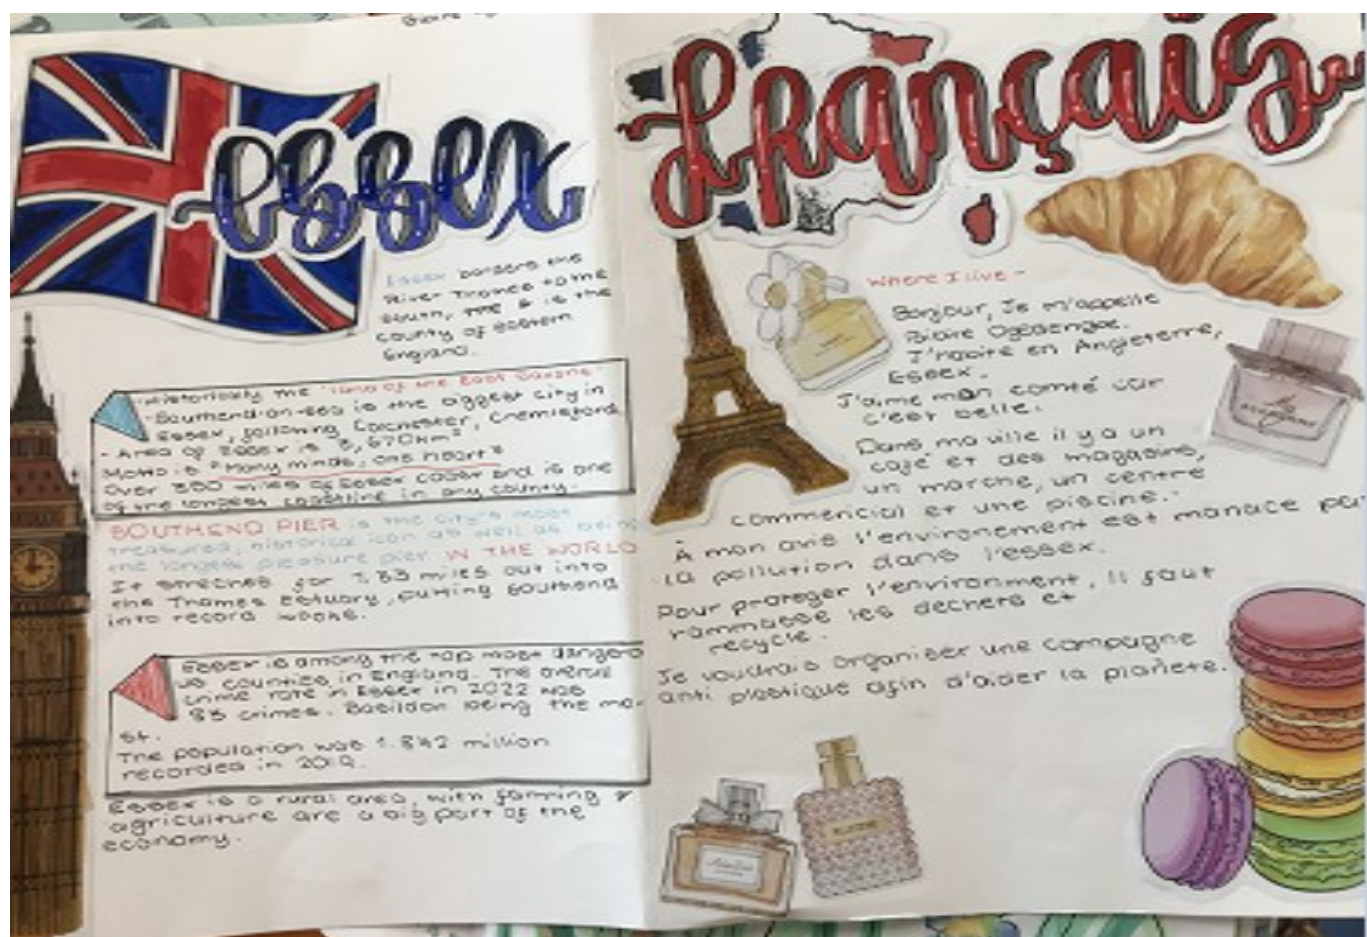 essex
Essex borders the
River Thames to the
south, the & is the
county of eastern
England.
- Historically the "land of the East Saxons"
- Southend-on-sea is the biggest city in
Essex, following Colchester, Chelmsford
- Area of Essex is 3,670km²
Motto is "Many minds, one heart"
Over 350 miles of Essex coast and is one
of the longest coastline in any county.
SOUTHEND PIER is the city's most
treasured, historical icon as well as being
the longest pleasure pier IN THE WORLD
It stretches for 1.33 miles out into
the Thames Estuary, putting Southend
into record books.
Essex is among the top most dangero
us counties in England. The overall
crime rate in Essex in 2022 was
83 crimes. Basildon being the mo-
st.
The population was 1.832 million
recorded in 2019.
Essex is a rural area, with farming &
agriculture are a big part of the
economy.
français
Where I live -
Bonjour, Je m'appelle
J'habite en Angleterre,
Essex.
J'aime mon comté car
c'est belle.
Dans ma ville il y a un
café et des magasins,
un marche, un centre
commercial et une piscine.
À mon avis l'environement est manace par
la pollution dans l'essex.
Pour proteger l'environment, il faut
rammasse les dechets et
recycle.
Je voudrais organiser une campagne
anti plastique afin d'aider la planete.